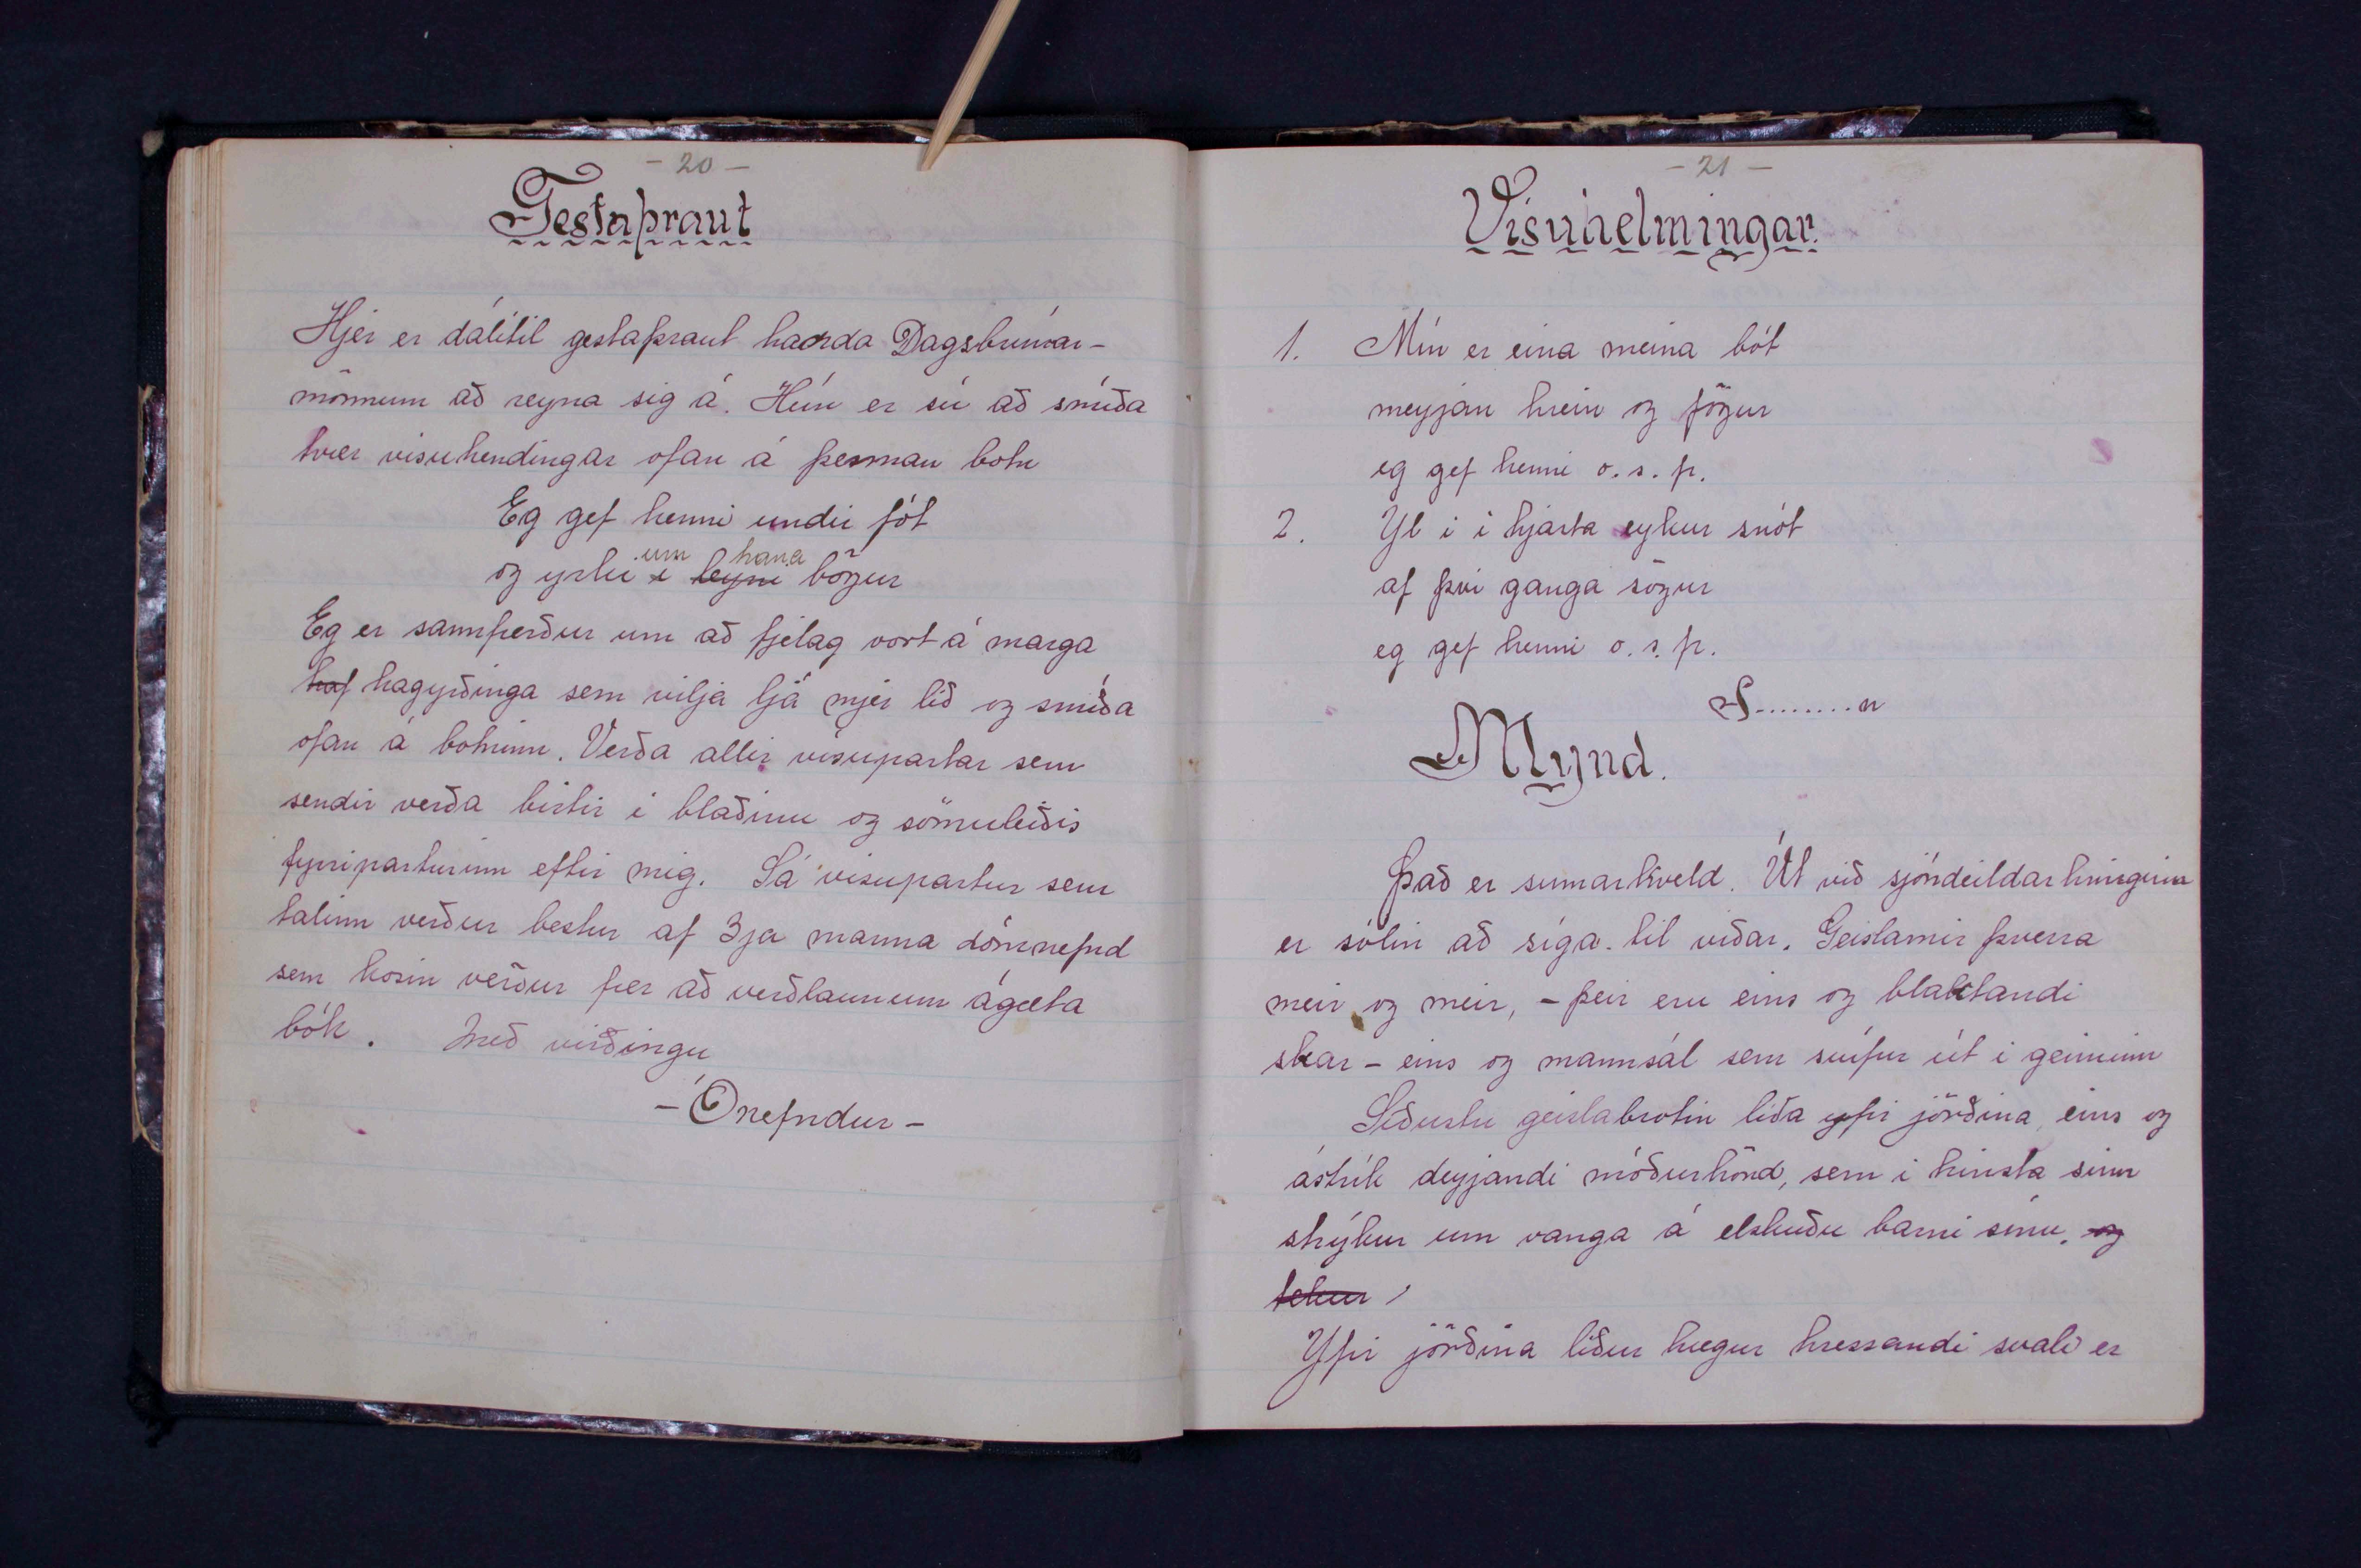 - 20 -
Gestaþraut
Hjer er dálítil gestaþraut handa Dagsbrúnar-
mönnum að reyna sig á. Hún er sú að smíða
tvær vísuhendingar ofan á þennan botn
Eg gef henni undir fót
um hana
og yrki í leyni bögur
Eg er sannfærður um að fjelag vort á marga
haf hagyrðinga sem vilja ljá mjer lið og smíða
ofan á botninn. Verða allir vísupartar sem
sendir verða birtir í blaðinu og sömuleiðis
fyrriparturinn eftir mig. Sá vísupartur sem
talinn verður bestur af 3ja manna dómnefnd
sem kosin verður fær að verðlaunum ágæta
bók. Með virðingu
- Ónefndur -
- 21 -
Vísuhelmingar.
1. Mín er eina meina bót
meyjan hrein og fögur
eg gef henni o. s. fr.
2. Yl i í hjarta eykur snót
af því ganga sögur
eg gef henni o. s. fr.
S.........n
Mynd.
Það er sumarkveld. Út við sjóndeildarhringinn
er sólin að síga til viðar. Geislarnir þverra
meir og meir, - þeir eru eins og blaktandi
skar - eins og mannsál sem svífur út í geiminn
Síðustu geislabrotin líða yfir jörðina, eins og
ástrík deyjandi móðurhönd, sem í hinsta sinn
strýkur um vanga á elskuðu barni sínu. og
tekur
Yfir jörðina líður hægur hressandi svali er